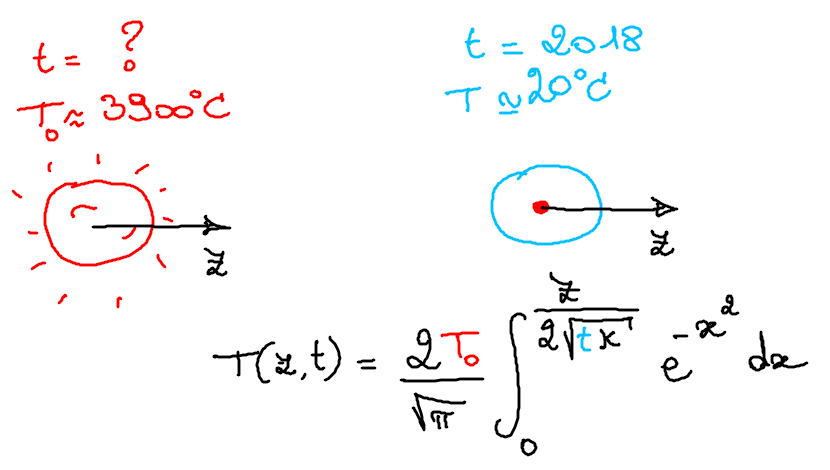 t = ?
T₀ ≈ 3900°C
t = 2018
T ≃ 20°C
z
z
T(z,t) = 2T₀/√π ∫₀^(z/(2√(tκ))) e^(-x²) dx